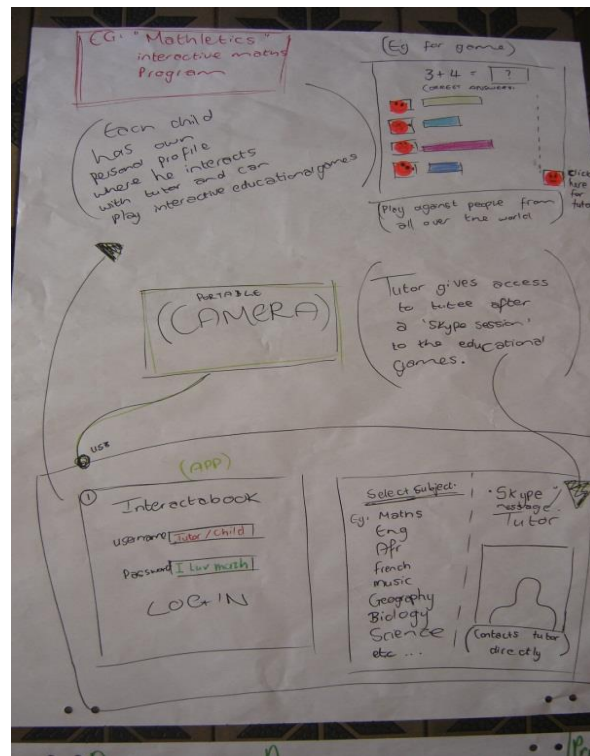 EG. "Mathletics"
interactive maths
Program
(Eg for game)
3 + 4 = ?
(correct answer)
Click
here
for
tutor
(Play against people from
all over the world)
(Each child
has own
personal profile
where he interacts
with tutor and can
play interactive educational games
PORTABLE
(CAMERA)
Tutor gives access
to tutee after
a 'Skype session'
to the educational
games.
USB
(APP)
1
Interactabook
Username Tutor/Child
Password I luv math
LOGIN
Select Subject.
Eg. Maths
Eng
Afr
french
music
Geography
Biology
Science
etc ...
"Skype"
message
Tutor
(Contacts tutor
directly)